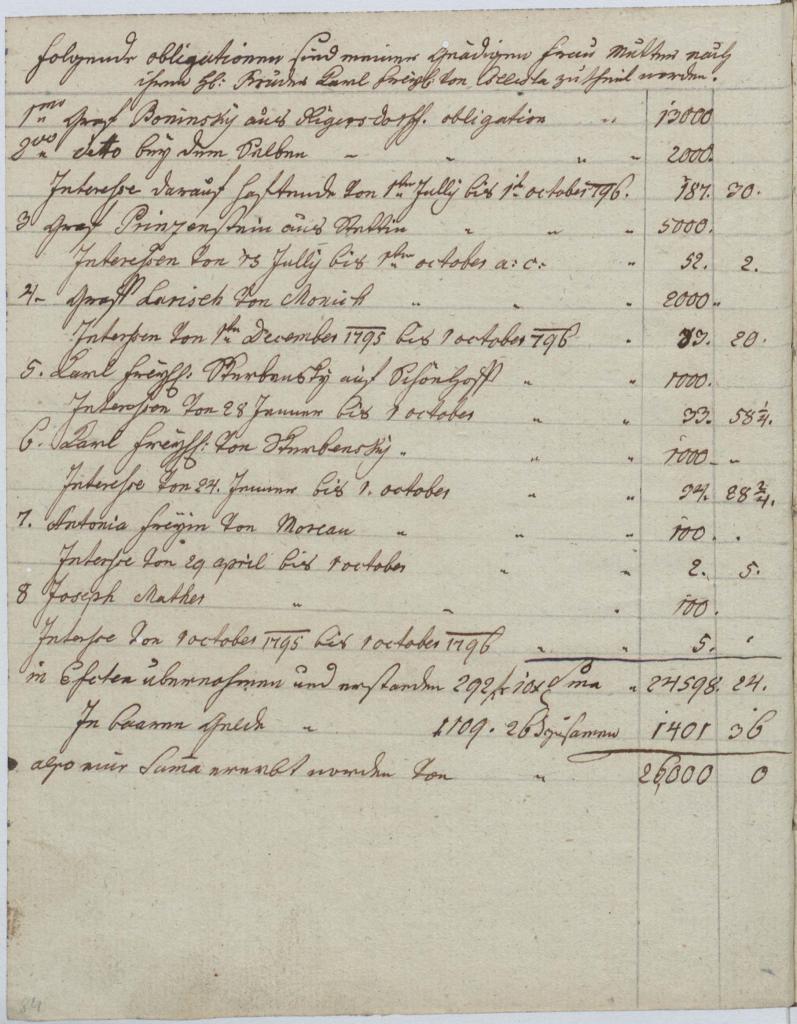 folgende obligationen sind meiner gnädigen Frau Mutter nach
ihrem Bruder Karl Freyh: von zu theil worden.
1mo Graf Boninsky aus Rigersdorff. obligation " 13000
2do " detto bey dem Selben " " " " 2000.
Interesse darauf haftende von 1ten Jully bis 1t october 796. 187. 30.
3 Graf Prinzenstein aus Stettin " " " 5000.
Interessen von 13 Jully bis 1ten october a: c: " 52. 2.
4. Graff Larisch von Monich " " " 2000 "
Interssen von 1ten December 1795 bis 1 october 796 " 83. 20.
5. Karl Freyh: Skrbensky auf Schönhoff " " 1000.
Interessen von 28 Jenner bis 1 october " " 33. 58 1/4.
6. Karl Freyh: von Skrbensky " " " 1000 "
Interesse von 24. Jenner bis 1. october " " 34. 28 3/4.
7. Antonia Freyin von Moreau " " " 100. .
Interesse von 29 april bis 1 october " " 2. 5.
8 Joseph Mather " " " 100.
Interesse von 1 october 1795 bis 1 october 1796 " " 5. "
in Efecten übernohmen und erstanden 292 f 10 x Suma " 24598. 24.
In baaren Gelde " 1109. 26 zusamen 1401 36
also eine Suma ererbt worden von " 26000 0
84